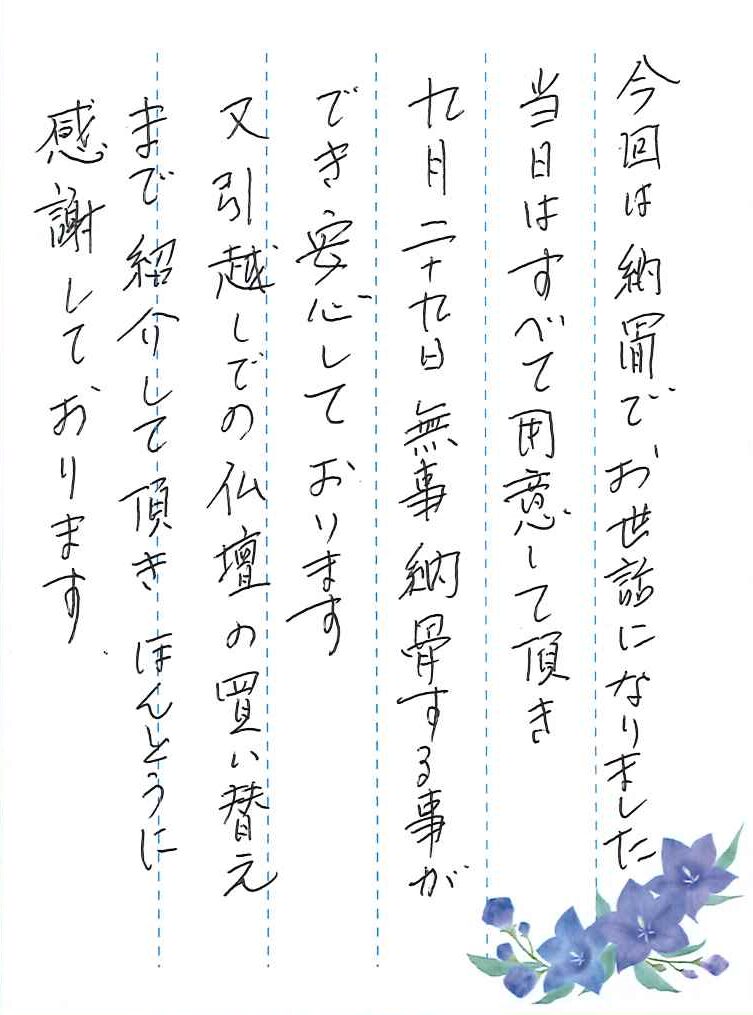 今回は納骨でお世話になりました
当日はすべて用意して頂き
九月二十九日無事納骨する事が
でき安心しております
又引越しでの仏壇の買い替え
まで紹介して頂きほんとうに
感謝しております